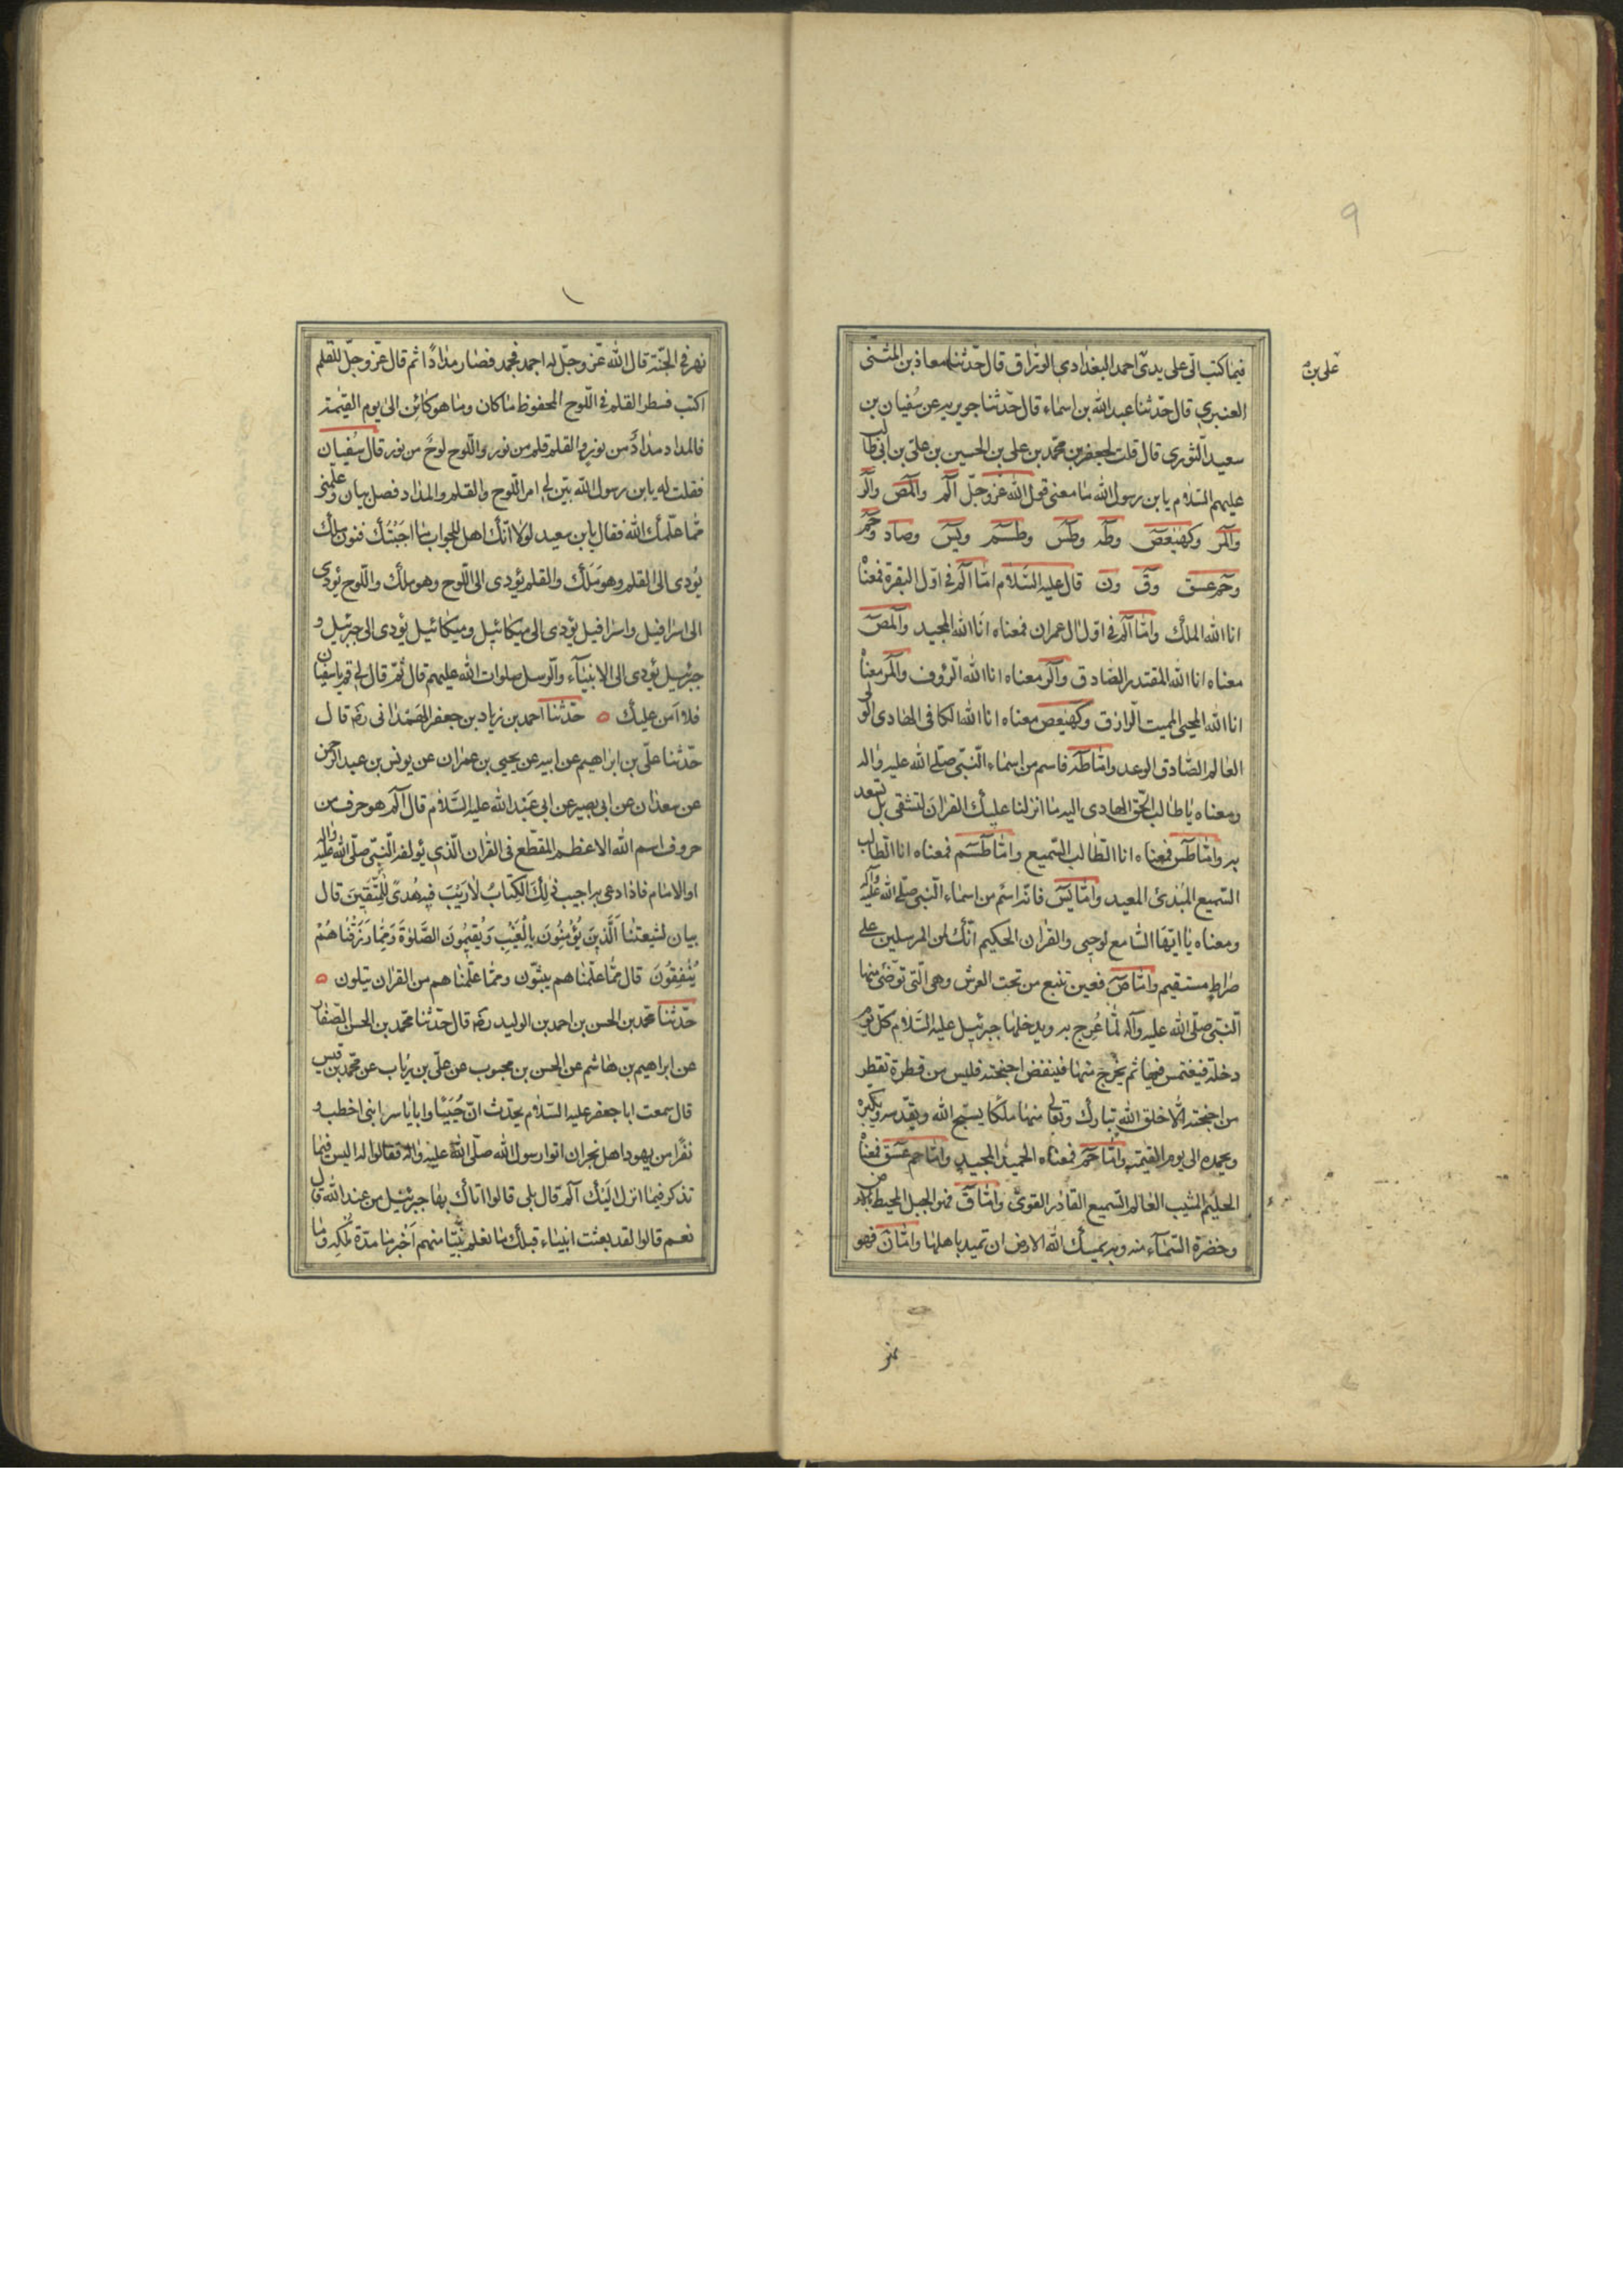 9
علی بن
فیما کتب الیّ علی یدیّ احمد البغدادی الورّاق قال حدّثنا معاذ بن المثنّی
العنبری قال حدّثنا عبد الله بن اسماء قال حدّثنا جویریه عن سُفیان بن
سعید الثّوری قال قلت لجعفر بن محمّد بن علی بن الحسین بن علیّ بن ابی طالب
علیهم السّلام یا بن رسول الله ما معنی قول الله عزّ وجلّ الٓم والٓمٓصٓ والٓر
والٓمر وکهٰیٰعٓصٓ وطٰه وطٓسٓ وطٓسٓم ویٰسٓ وصٓاد وحٓم
وحٓمعسق وقٓ ون قال علیه السّلام امّا الٓم فی اوّل البقرة فمعناه
انا الله الملک وامّا الٓم فی اوّل ال عمران فمعناه انا الله المجید والٓمٓصٓ
معناه انا الله المقتدر الصّادق والٓر معناه انا الله الرّؤف والٓمر معناه
انا الله المحیی الممیت الرازق وکهٰیٰعص معناه انا الله الکافی الهادی الولی
العالم الصّادق الوعد وامّا طه فاسم من اسماء النّبیّ صلّی الله علیه واله
ومعناه یا طالب الحقّ الهادی الیه ما انزلنا علیک القران لتشقی بل لتسعد
به وامّا طٓسٓ فمعناه انا الطّالب السّمیع وامّا طٓسٓم فمعناه انا الطّالب
السّمیع المُبدیٔ المعید وامّا یٰسٓ فانّه اسم من اسماء النّبی صلّی الله علیه وآله
ومعناه یا ایّها السّامع لوحیی والقران الحکیم انّک لمن المرسلین علی
صراط مستقیم وامّا صٓ فعین تنبع من تحت العرش وهی الّتی توضّیٔ منها
النّبیّ صلّی الله علیه وآله لمّا عُرج به ویدخلها جبرئیل علیه السّلام کلّ یوم
دخلة فیغتمس فیها ثم یخرج منها فینفض اجنحته فلیس من قطرة تقطر
من اجنحته الّا خلق الله تبارک وتعالی منها ملکا یسبّح الله ویقدّسه ویکبّره
ویحمده الی یوم القیٰمة وامّا حٓم فمعناه الحمید المجید وامّا حم عٓسٓق فمعناه
الحلیم المثیب العالم السّمیع القادر القویّ وامّا قٓ فهو الجبل المحیط بالارض
وخضرة السّماء منه وبه یمسک الله الارض ان تمید باهلها وامّا نٓ فهو
نهر
نهر فی الجنّة قال الله عزّ وجلّ له اجمد فجمد فصار مدادًا ثم قال عزّ وجلّ للقلم
اکتب فسطر القلم فی اللّوح المحفوظ ما کان وما هو کائن الی یوم القیٰمة
فالمداد مدادٌ من نور والقلم قلم من نور واللّوح لوحٌ من نور قال سُفیان
فقلت له یا بن رسول الله بیّن لی امر اللّوح والقلم والمداد فصل بیان وعلّمنی
ممّا علّمک الله فقال یا بن سعید لولا انّک اهل للجواب ما اجَبْتُک فنون ملک
یُؤدی الی القلم وهو مَلَک والقلم یؤدی الی اللّوح وهو ملک واللّوح یؤدی
الی اسرافیل واسرافیل یؤدی الی میکائیل ومیکائیل یؤدی الی جبرئیل و
جبرئیل یؤدی الی الانبیآء والرّسل صلوات الله علیهم قال ثمّ قال لی قم یا سفیان
فلا آمن علیک ه حدّثنا احمد بن زیاد بن جعفر الهَمَدانی ره قال
حدّثنا علیّ بن ابراهیم عن ابیه عن یحیی بن عمران عن یونس بن عبد الرحمن
عن سعدان عن ابی بصیر عن ابی عَبْد الله علیه السَّلام قال الٓم هو حرف من
حروف اسم الله الاعظم المقطّع فی القران الّذی یؤلفه النّبیّ صلّی الله علیه واله
او الامام فاذا دعی به اجیب ذٰلِکَ الْکِتٰابُ لٰا رَیْبَ فیهِ هُدیً لِلْمُتَّقینَ قال
بیان لشیعتنا اَلَّذینَ یُؤْمِنُونَ بِالْغَیْبِ وَیُقیمُونَ الصَّلوٰةَ وَمِمّٰا رَزَقْنٰاهُمْ
یُنْفِقُونَ قال ممّا علّمناهم یبثّون وممّا علّمناهم من القران یتلون ه
حدّثنا محمّد بن الحسن بن احمد بن الولید ره قال حدّثنا محمّد بن الحسن الصّفار
عن ابراهیم بن هاشم عن الحسن بن محبوب عن علیّ بن رئاب عن محمّد بن قیس
قال سمعت ابا جعفر علیه السّلام یحدّث انّ حُیَیًّا وابا یاسر ابنی اخطب و
نفرًا من یهود اهل نجران اتوا رسول الله صلّی الله علیه واله فقالوا له الیس فیما
تذکر فیما انزل الَیْک الٓم قال بلی قالوا اتاک بها جبرئیل من عند الله قال
نعم قالوا لقد بعثت انبیاء قبلک ما نعلم نبیّا منهم اَخْبرنا مدّة مُلکه وما